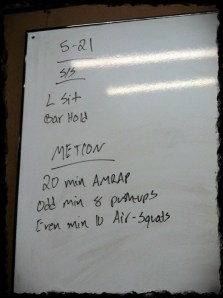 5-21
S/S
L Sit
Bar Hold
METCON
20 min AMRAP
Odd min 8 push-ups
Even min 10 Air-Squats